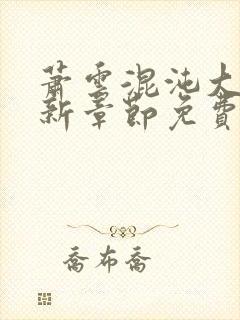 蕭雲混沌大
新章節免費
喬布喬